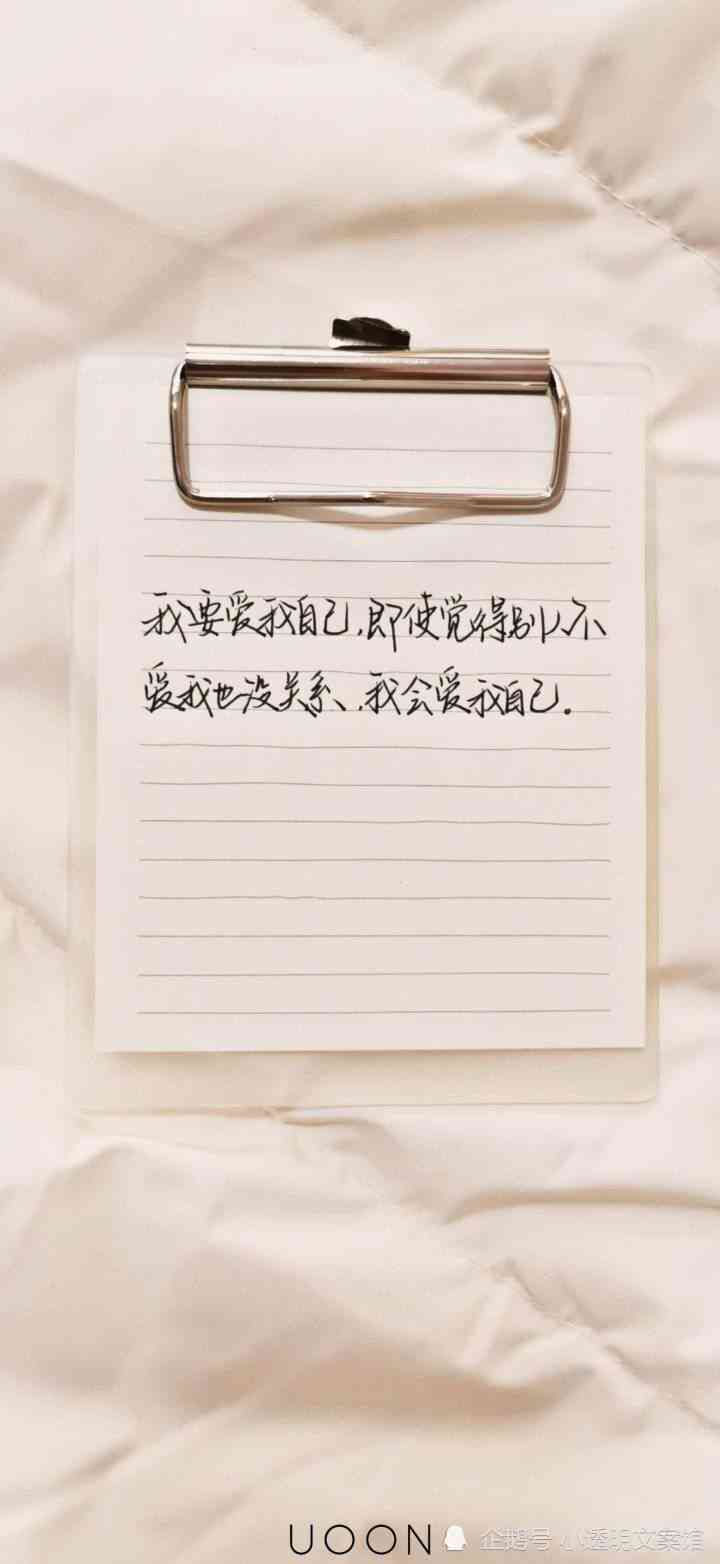 我要爱我自己，即使觉得别人不
爱我也没关系、，我会爱我自己。
UOON 企鹅号 小透明文案馆